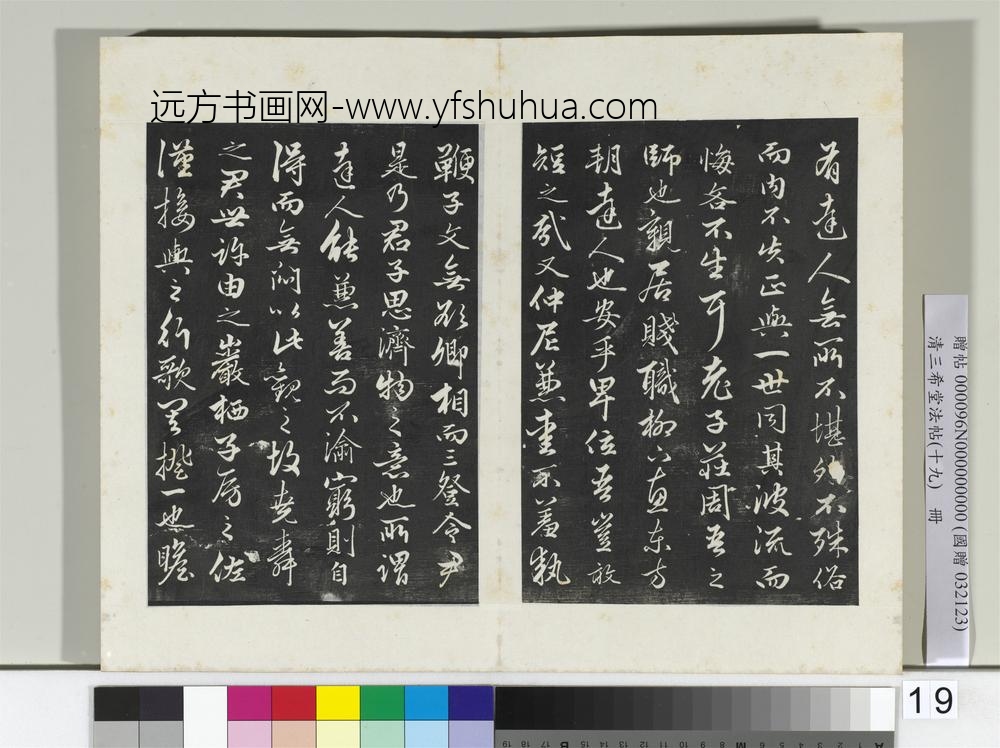 远方书画网-www.yfshuhua.com
有達人無所不堪外不殊俗
而内不失正與一世同其波流而
悔吝不生耳老子莊周吾之
師也親居賤職柳下惠東方
朝達人也安乎卑位吾豈敢
短之哉又仲尼兼愛不羞執
鞭子文無欲卿相而三登令尹
是乃君子思濟物之意也所謂
達人能兼善而不渝窮則自
得而無悶以此觀之故堯舜
之君世許由之巖栖子房之佐
漢接輿之行歌其揆一也瞻
贈帖 000096N000000000 (國贈 032123)
清三希堂法帖(十九) 册
19